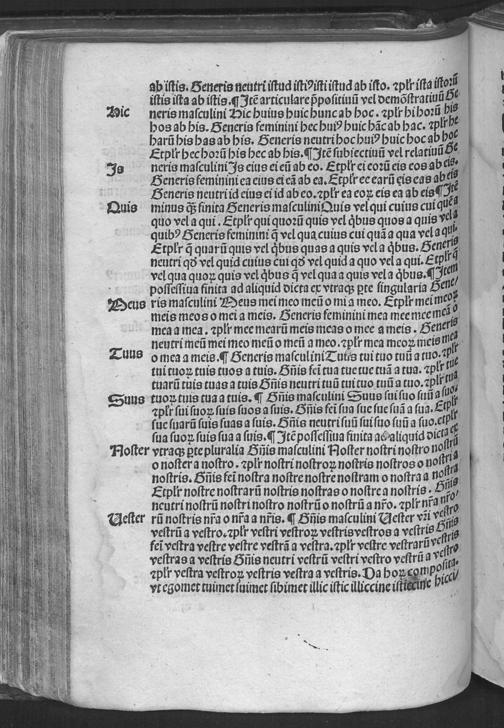 ab istis. Generis neutri istud istiꝰ isti istud ab isto. ⁊plr̄ ista istorū
istis ista ab istis. ¶ Itē articulare p̄positiuū vel demōstratiuū Ge
Hic neris masculini Hic huius huic hunc ab hoc. ⁊plr̄ hi horū his
hos ab his. Generis feminini hec huiꝰ huic hāc ab hac. ⁊plr̄ he
harū his has ab his. Generis neutri hoc huiꝰ huic hoc ab hoc
Etplr̄ hec horū his hec ab his. ¶ Itē subiectiuū vel relatiuū Ge
Is neris masculini Is eius ei eū ab eo. Etplr̄ ei eorū eis eos ab eis.
Generis feminini ea eius ei eā ab ea. Etplr̄ ee earū eis eas ab eis
Generis neutri id eius ei id ab eo. ⁊plr̄ ea eoꝝ eis ea ab eis ¶ Itē
Quis minus qꝫ finita Generis masculini Quis vel qui cuius cui quē a
quo vel a qui. Etplr̄ qui quorū quis vel q̇bus quos a quis vel a
quibꝰ Generis feminini q̄ vel qua cuius cui quā a qua vel a qui.
Etplr̄ q̄ quarū quis vel q̇bus quas a quis vel a q̇bus. Generis
neutri qđ vel quid cuius cui qđ vel quid a quo vel a qui. Etplr̄ q̄
vel qua quoꝝ quis vel q̇bus q̄ vel qua a quis vel a q̇bus. ¶ Item
possessiua finita ad aliquid dicta ex vtraqꝫ ꝑte singularia Gene
Meus ris masculini Meus mei meo meū o mi a meo. Etplr̄ mei meoꝝ
meis meos o mei a meis. Generis feminini mea mee mee meā o
mea a mea. ⁊plr̄ mee mearū meis meas o mee a meis. Generis
neutri meū mei meo meū o meū a meo. ⁊plr̄ mea meoꝝ meis mea
Tuus o mea a meis. ¶ Generis masculini Tuus tui tuo tuū a tuo. ⁊plr̄
tui tuoꝝ tuis tuos a tuis. Gn̄is fei tua tue tue tuā a tua. ⁊plr̄ tue
tuarū tuis tuas a tuis Gn̄is neutri tuū tui tuo tuū a tuo. ⁊plr̄ tua
Suus tuoꝝ tuis tua a tuis. ¶ Gn̄is masculini Suus sui suo suū a suo.
⁊plr̄ sui suoꝝ suis suos a suis. Gn̄is fei sua sue sue suā a sua. Etplr̄
sue suarū suis suas a suis. Gn̄is neutri suū sui suo suū a suo. etplr̄
sua suoꝝ suis sua a suis. ¶ Itē possessiua finita ad aliquid dicta ex
Noster vtraqꝫ ꝑte pluralia Gn̄is masculini Noster nostri nostro nostrū
o noster a nostro. ⁊plr̄ nostri nostroꝝ nostris nostros o nostri a
nostris. Gn̄is fei nostra nostre nostre nostram o nostra a nostra
Etplr̄ nostre nostrarū nostris nostras o nostre a nostris. Gn̄is
neutri nostrū nostri nostro nostrū o nostrū a nr̄o. ⁊plr̄ nr̄a nr̄o
Uester rū nostris nr̄a o nr̄a a nr̄is. ¶ Gn̄is masculini Uester vr̄i vestro
vestrū a vestro. ⁊plr̄ vestri vestroꝝ vestris vestros a vestris Gn̄is
fei vestra vestre vestre vestrā a vestra. ⁊plr̄ vestre vestrarū vestris
vestras a vestris Gn̄is neutri vestrū vestri vestro vestrū a vestro
⁊plr̄ vestra vestroꝝ vestris vestra a vestris. Da hoꝝ composita.
vt egomet tuimet suimet sibimet illic istic illiccine isticcine hicci